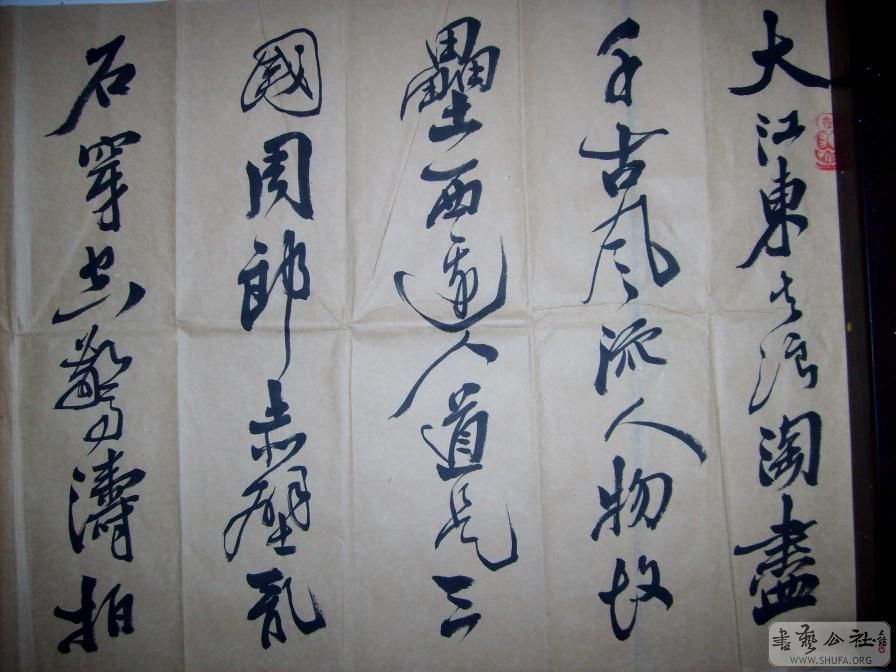 大江東去浪淘盡
千古風流人物故
壘西邊人道是三
國周郎赤壁亂
石穿空驚濤拍
書藝公社
WWW.SHUFA.ORG